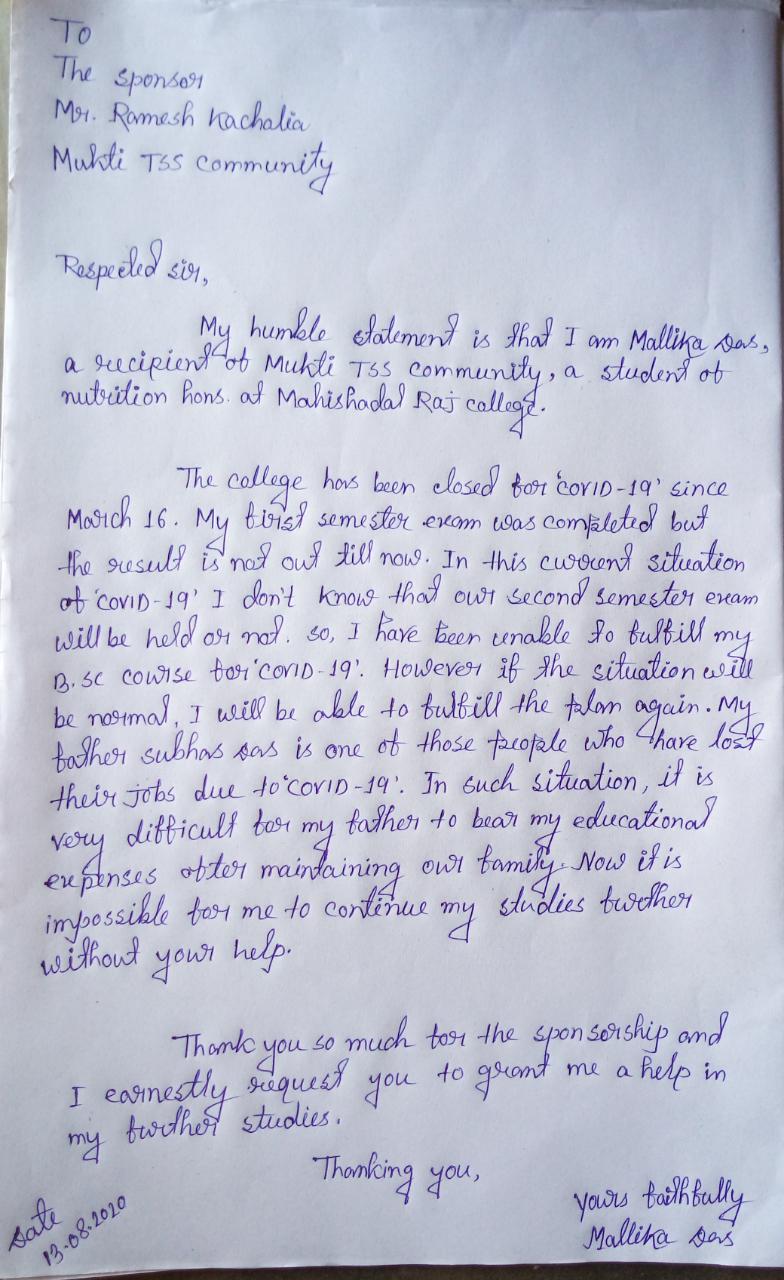 To
The sponsor
Mr. Ramesh Kachalia
Mukti TSS community
Respected sir,
My humble statement is that I am Mallika Das,
a recipient of Mukti TSS community, a student of
nutrition hons. at Mahishadal Raj college.
The college has been closed for 'COVID-19' since
March 16. My first semester exam was completed but
the result is not out till now. In this current situation
of 'COVID-19' I don't know that our second semester exam
will be held or not. so, I have been unable to fulfill my
B.sc course for 'COVID-19'. However if the situation will
be normal, I will be able to fulfill the plan again. My
father subhas Das is one of those people who have lost
their jobs due to 'COVID-19'. In such situation, it is
very difficult for my father to bear my educational
expenses after maintaining our family. Now it is
impossible for me to continue my studies further
without your help.
Thank you so much for the sponsorship and
I earnestly request you to grant me a help in
my further studies.
Thanking you,
Yours faithfully
Mallika Das
Date
13-08-2020